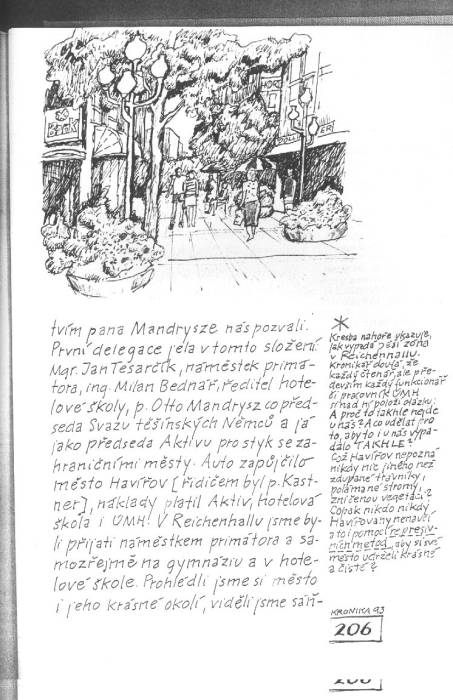 tvím pana Mandrysze nás pozvali.
První delegace jela v tomto složení:
Mgr. Jan Tesarčík, náměstek primá-
tora, ing. Milan Bednář, ředitel hote-
lové školy, p. Otto Mandrysz co před-
seda Svazu těšínských Němců a já
jako předseda Aktivu pro styk se za-
hraničními městy. Auto zapůjčilo
město Havířov [řidičem byl p. Kast-
ner], náklady platil Aktiv, hotelová
škola i ÚMH. V Reichenhallu jsme by-
li přijati náměstkem primátora a sa-
mozřejmě na gymnáziu a v hote-
lové škole. Prohlédli jsme si město
i jeho krásné okolí, viděli jsme saň-
*
Kresba nahoře ukazuje,
jak vypadá pěší zóna
v Reichenhallu.
Kronikář doufá, že
každý čtenář, ale pře-
devším každý funkcionář
či pracovník ÚMH
si nad ní položí otázku:
A proč to takhle nejde
u nás? A co udělat pro
to, aby to i u nás vypa-
dalo TAKHLE?
Což Havířov nepozná
nikdy nic jiného než
zdupané trávníky,
polámané stromy,
zničenou vegetaci?
Copak nikdo nikdy
Havířovany nenaučí
a to i pomocí represiv-
ních metod, aby si své
město udrželi krásné
a čisté?
KRONIKA 93
206